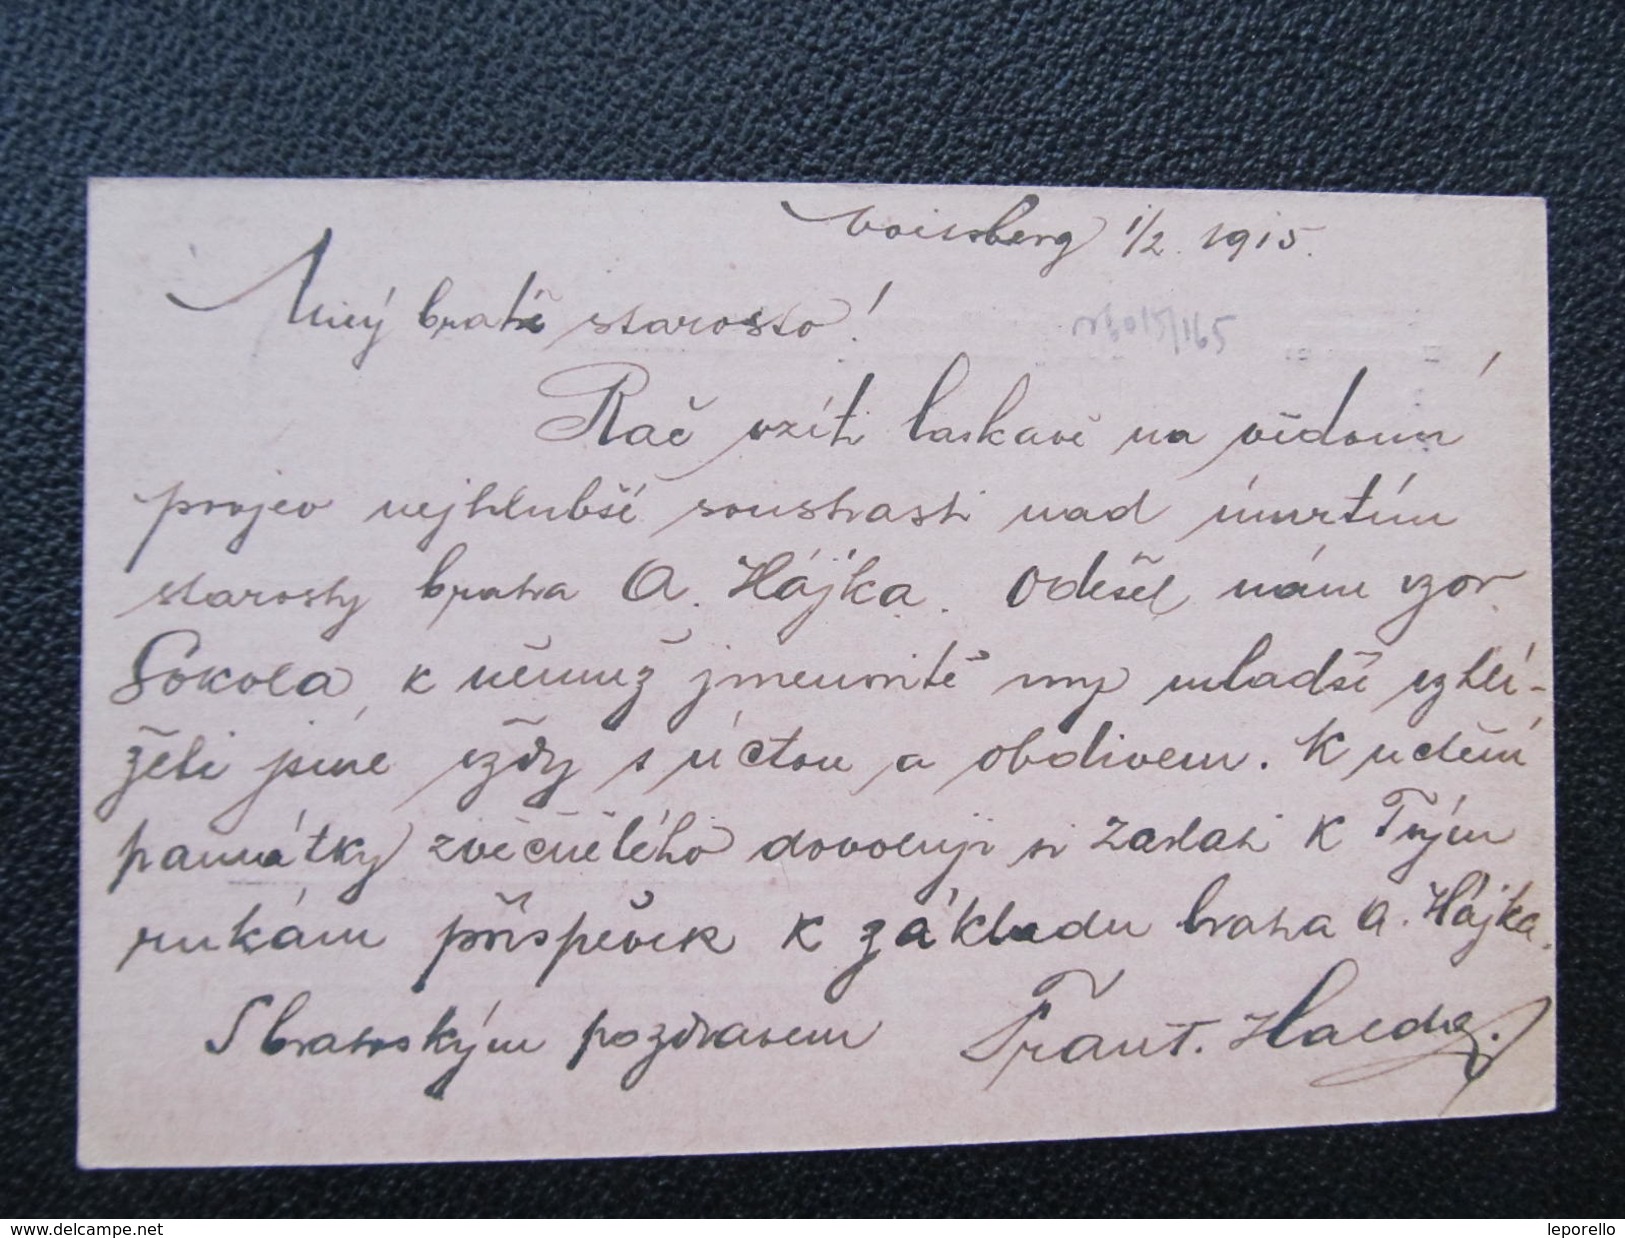 Voitsberg 1/2. 1915.
Milý bratře starosto!
Rač vzíti laskavě na vědomí
projev nejhlubší soustrasti nad úmrtím
starosty bratra A. Hájka. Odešel nám vzor
Sokola, k němuž jmenovitě my mladší vzhlí-
želi jsme vždy s úctou a obdivem. K uctění
památky zvěčnělého dovoluji si zaslati k Tvým
rukám příspěvek k základu bratra A. Hájka.
S bratrským pozdravem Frant.
www.delcampe.net
leporello